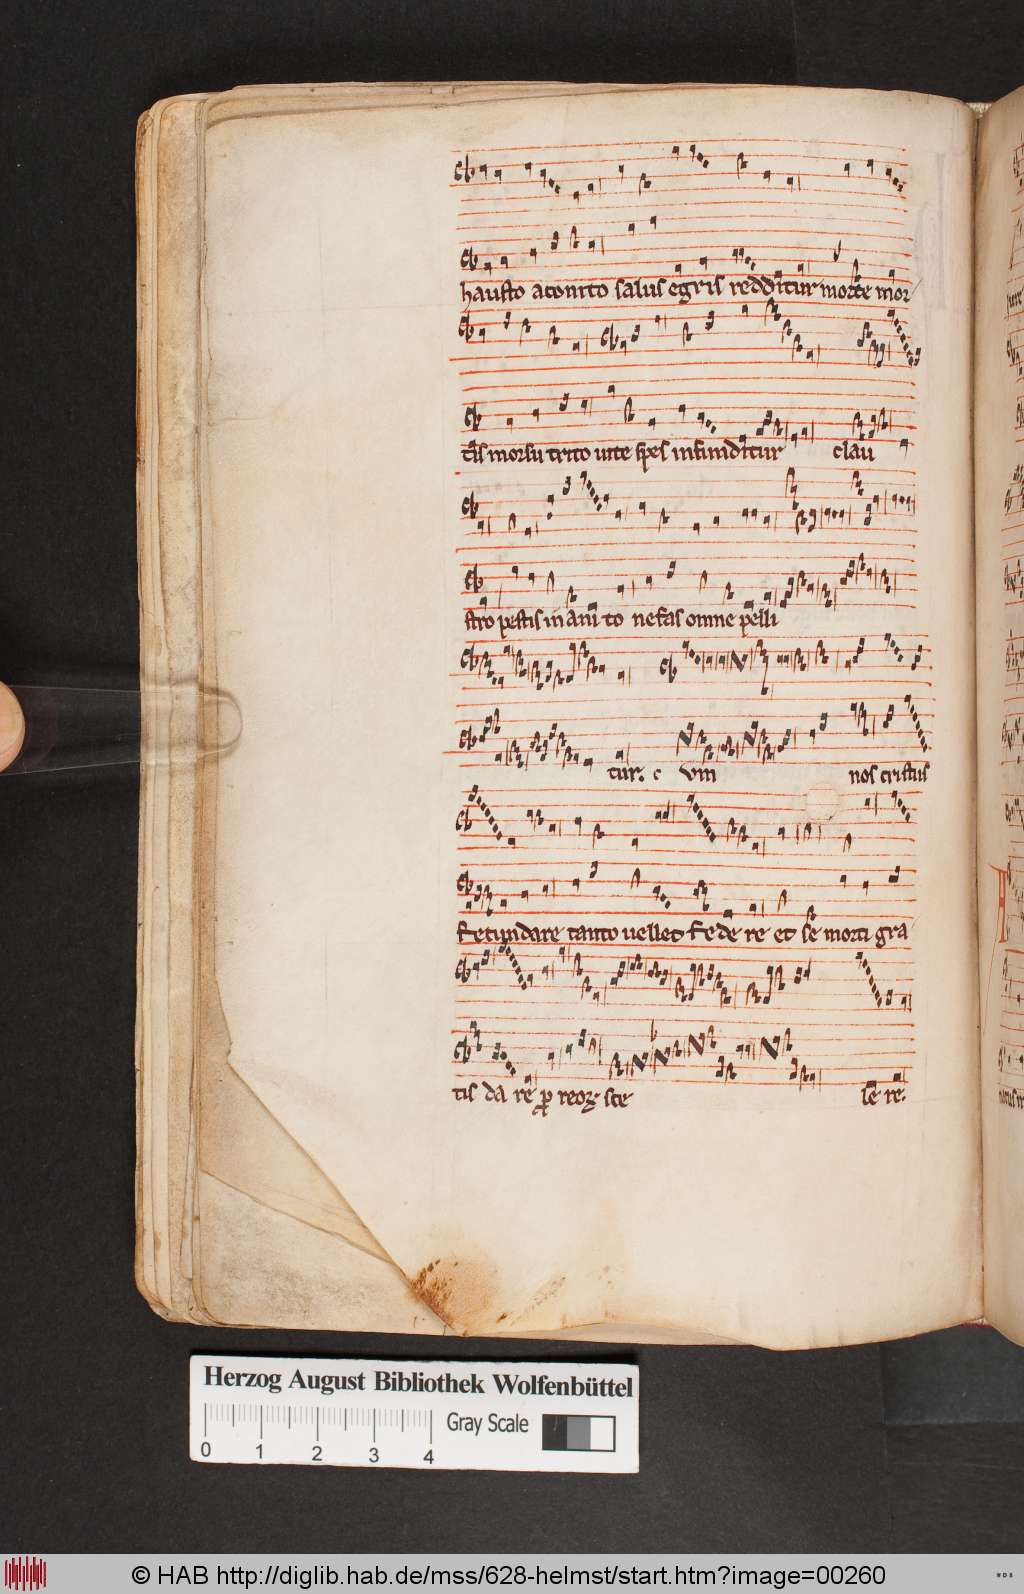 hausto aconito salus egris redditur morte mor
tis morsu trito uite spes infunditur clau
stro pestis inanito nefas omne pelli
tur. c vm nos cristus
fecundare tanto uellet federe et se morti gra
tis dare reoꝝ ste
se re.
Herzog August Bibliothek Wolfenbüttel
Gray Scale
0 1 2 3 4
© HAB http://diglib.hab.de/mss/628-helmst/start.htm?image=00260